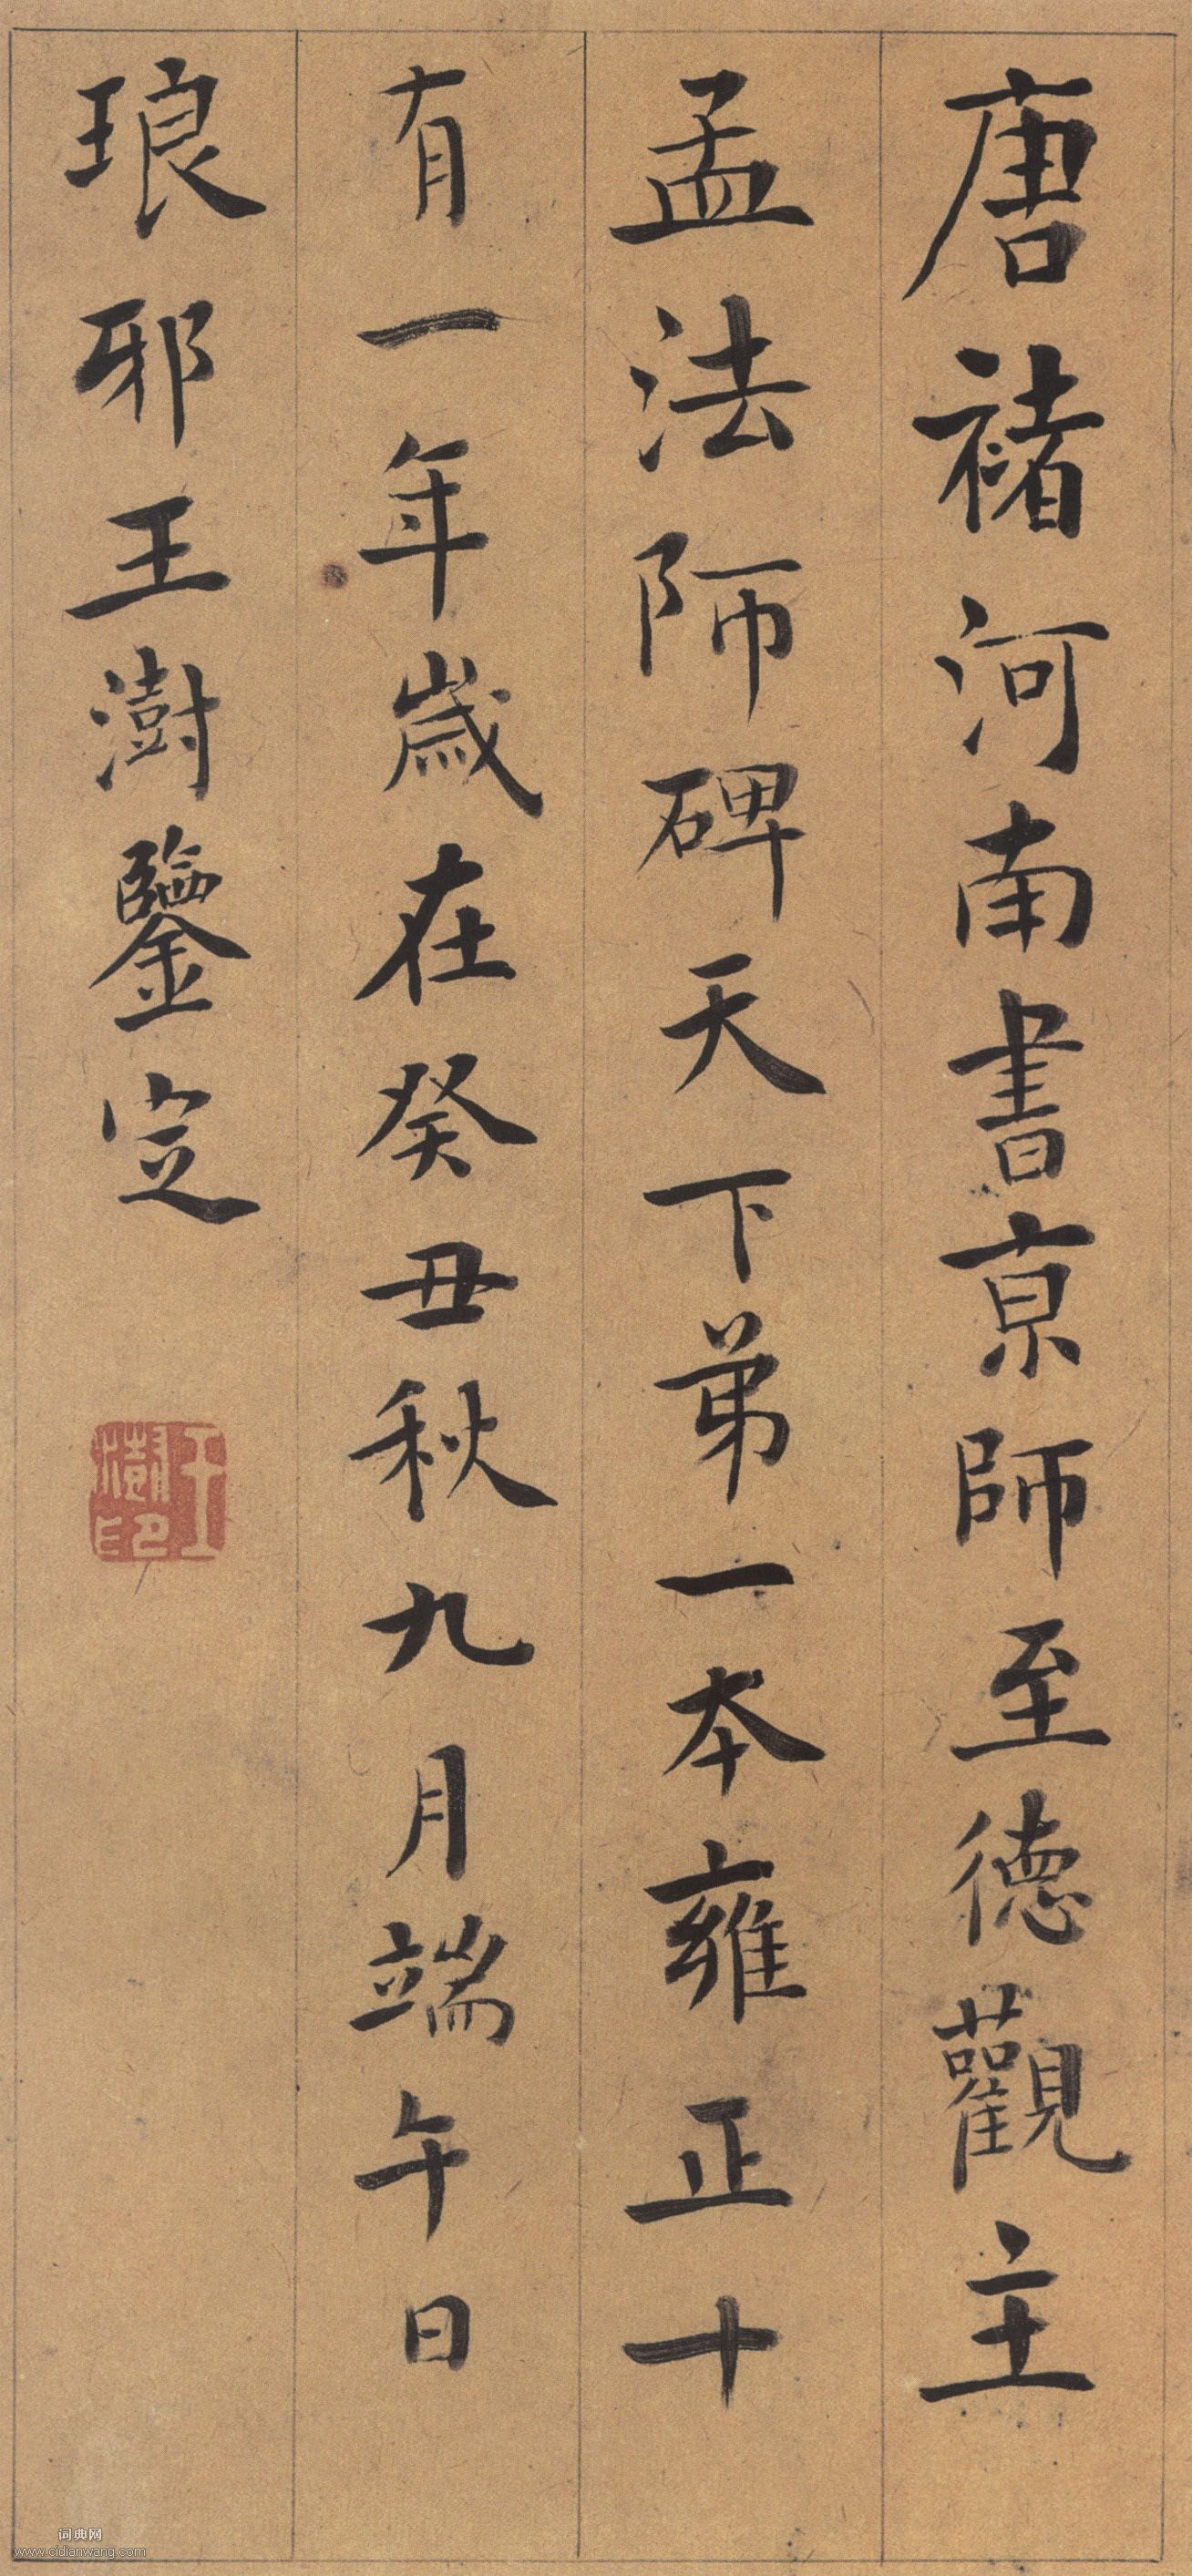 唐褚河南書京師至德觀主
孟法師碑天下弟一本雍正十
有一年歲在癸丑秋九月端午日
琅邪王澍鑒定
王澍印
词典网
www.cidianwang.com